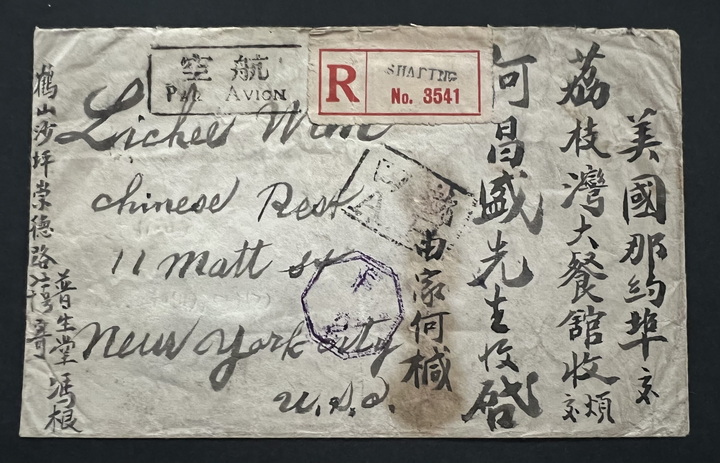 航空
PAR AVION
R
SHAPING
No. 3541
Lichee Wan
Chinese Rest
11 Matt St
New York City
U.S.A.
美國那約埠交
荔枝灣大餐館收煩交
何昌盛先生收啓
由家何椷
鶴山沙坪崇德路
普生堂馮根